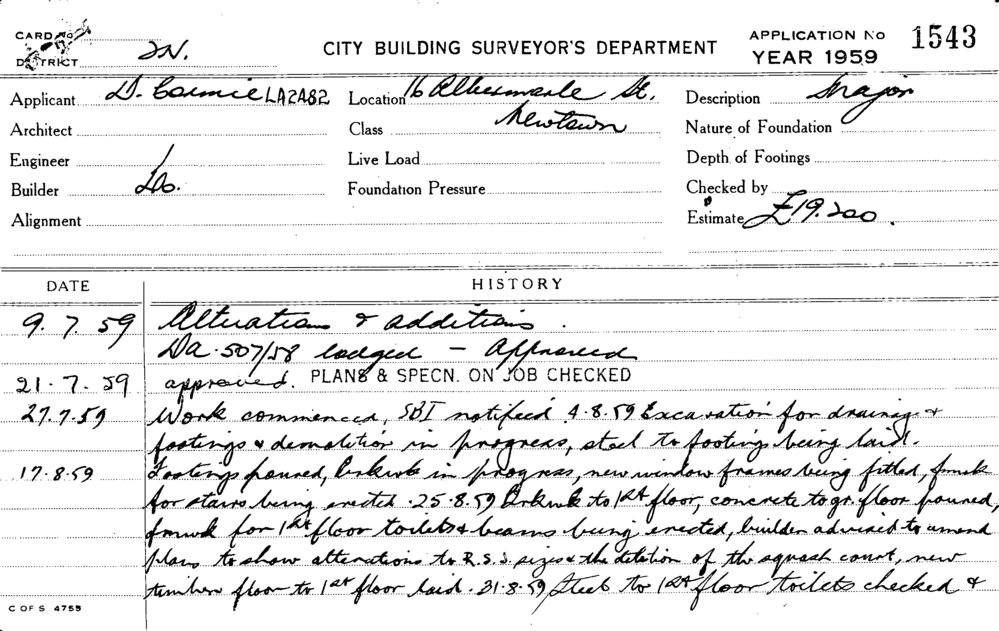 CARD No
DISTRICT 2N.
CITY BUILDING SURVEYOR'S DEPARTMENT
APPLICATION No 1543
YEAR 1959
Applicant D. Cosmic LA2A82
Location 16 Albermarle St.
Newtown
Description Major
Architect
Class
Nature of Foundation
Engineer
Live Load
Depth of Footings
Builder Do.
Foundation Pressure
Checked by
Alignment
Estimate £19.200.
DATE
HISTORY
9. 7. 59 Alterations & additions.
Da. 507/58 lodged – Approved
21. 7. 59 approved. PLANS & SPECN. ON JOB CHECKED
27.7.59 Work commenced, SBI notified 4.8.59 Excavation for drainage &
footings & demolition in progress, steel to footings being laid.
17.8.59 Footings poured, brkwk in progress, new window frames being fitted, fmwk
for stairs being erected. 25.8.59 Brkwk to 1st floor, concrete to gr. floor poured,
fmwk for 1st floor toilets & beams being erected, builder advised to amend
plans to show alterations to R.S.J. sizes & the deletion of the squash court, new
timber floor to 1st floor laid. 31.8.59 Steel to 1st floor toilets checked &
C OF S 4755